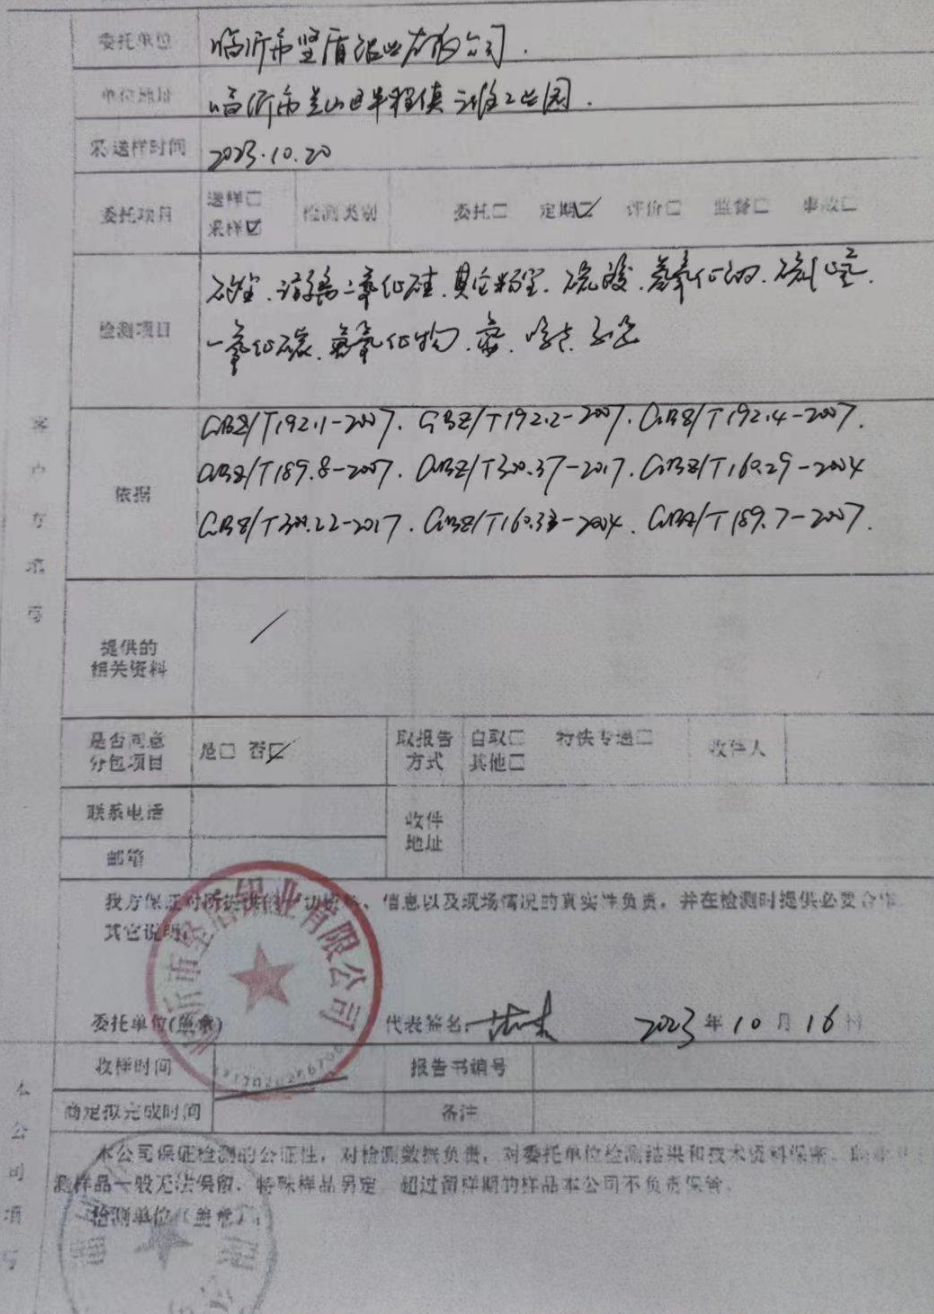 委托单位 临沂市坚盾铝业有限公司.
单位地址 临沂市兰山区半程镇 工业园.
采/送样时间 2023.10.20
委托项目 送样□ 采样☑ 检测类别 委托□ 定期☑ 评价□ 监督□ 事故□
检测项目
矽尘、游离二氧化硅、其它粉尘、硫酸、氮氧化物、硫化氢、
一氧化碳、氮氧化物、噪声
依据
GBZ/T192.1-2007. GBZ/T192.2-2007. GBZ/T192.4-2007.
GBZ/T189.8-2007. GBZ/T300.37-2017. GBZ/T160.29-2004
GBZ/T300.22-2017. GBZ/T160.33-2004. GBZ/T189.7-2007.
客户方填写
提供的
相关资料 /
是否同意
分包项目 是□ 否☑ 取报告
方式 自取□ 特快专递□
其他□ 收件人
联系电话 收件
地址
邮箱
我方保证对所提供的一切资料、信息以及现场情况的真实性负责，并在检测时提供必要合作。
其它说明：
临沂市坚盾铝业有限公司
委托单位(盖章) 代表签名： 2023 年 10 月 16 日
收样时间 报告书编号
商定拟完成时间 备注
本公司填写
本公司保证检测的公证性，对检测数据负责，对委托单位检测结果和技术资料保密。
测样品一般无法保留，特殊样品另定，超过留样期的样品本公司不负责保管。
检测单位（盖章）：